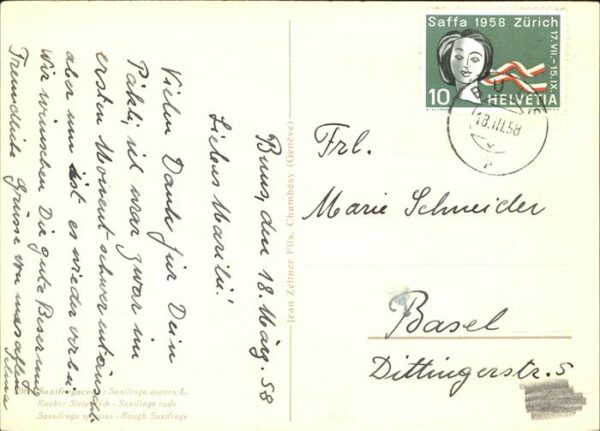 Buus, den 18. März. 58
Liebes Marili!
Vielen Dank für Dein
Päkli, ich war zwar im
ersten Moment schwer enttäuscht
aber nun ist es wieder vorbei
Wir wünschen Dir gute Besserung
Freundliche Grüsse von uns allen
Saxifraga aspera, L.
Rauher - Saxifrage rude
Sassifraga - Rough Saxifrage
Jean Zellner Fils, Chambésy (Genève)
Saffa 1958 Zürich
17.VII.-15.IX.
10 HELVETIA
BUUS
18.III.58
Frl.
Marie Schneider
Basel
Dittingerstr. 5